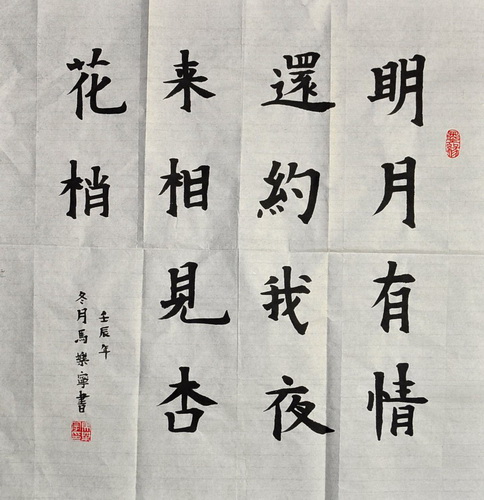 明月有情
還約我夜
来相見杏
花梢
壬辰年
冬月馬樂寧書